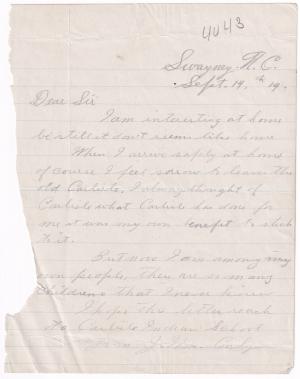 4443
Swayney, N.C.
Sept. 19, th 19.
Dear Sir
I am interesting at home
be still it don't seems like home
When I arrive safely at home
of course I feel sorrow to leave the
old Carlisle, I always thought of
Carlisle what Carlisle has done for
me it was my own benefit to stick
to it.
But now I am among my
own people, there are so many
childrens that I never knew
I hope this letter reach
to Carlisle Indian School
From